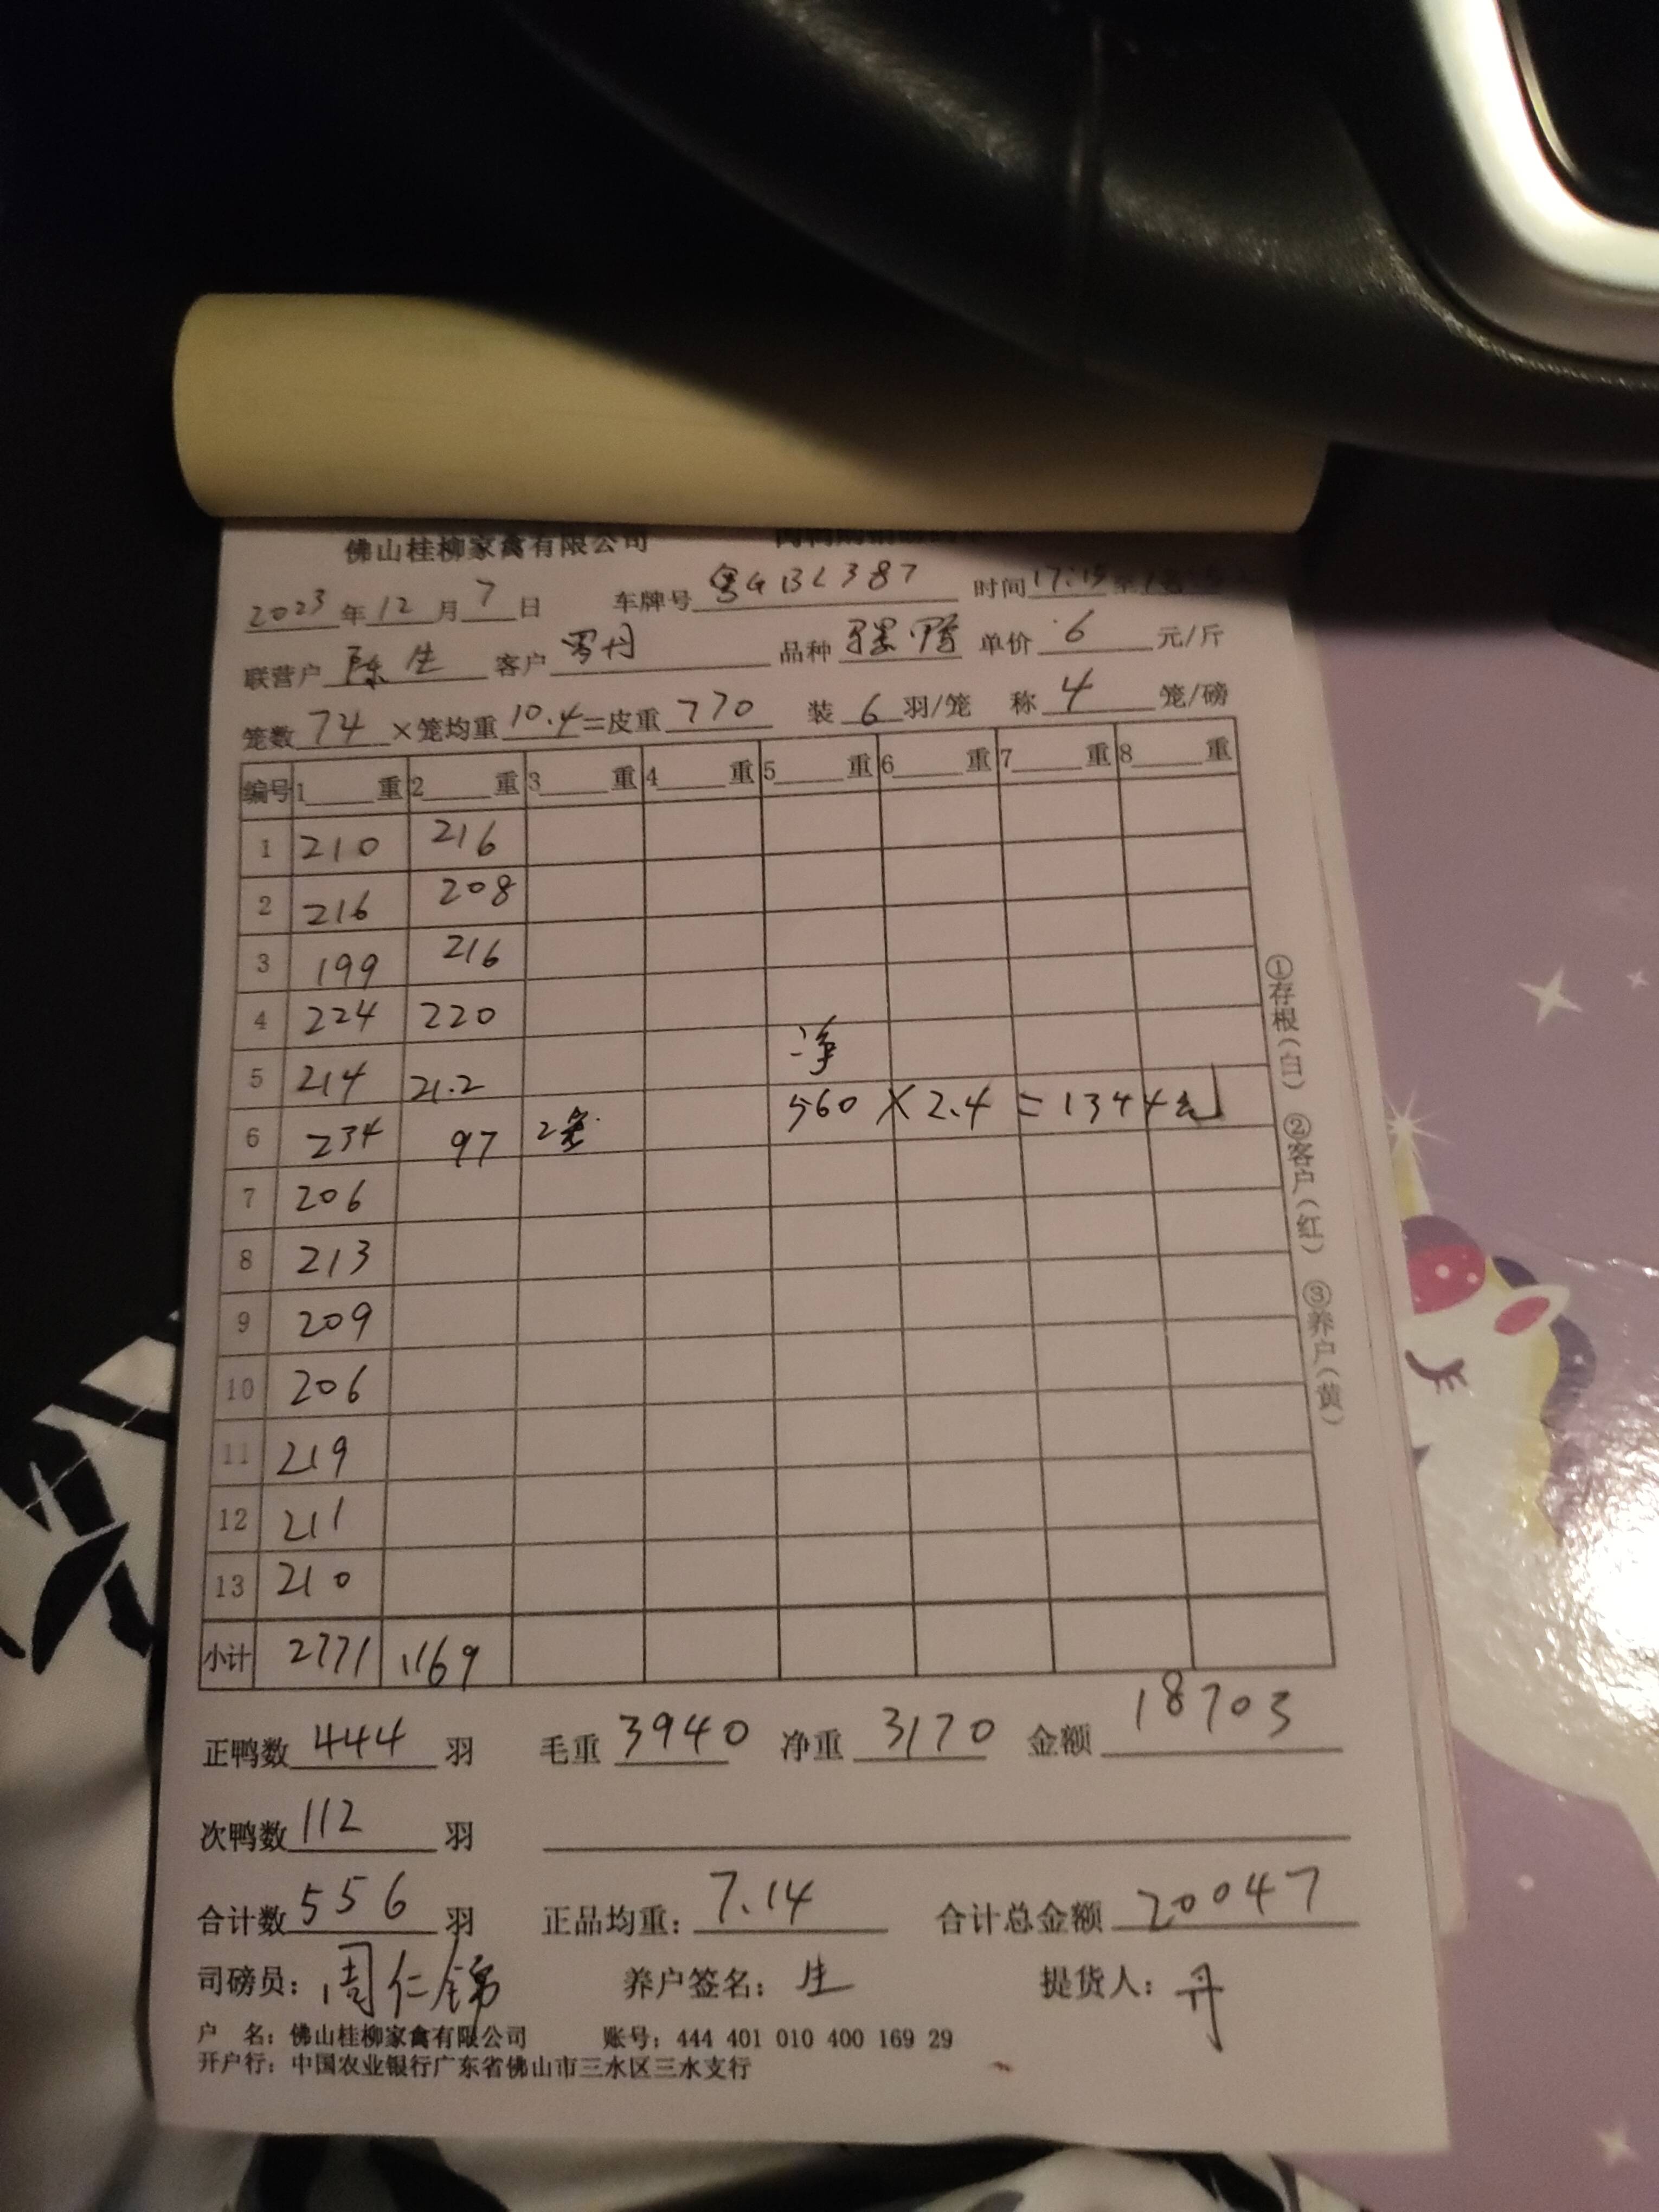 佛山桂柳家禽有限公司
2023年12月7日 车牌号粤GBL387 时间17:15至
联营户陈生 客户罗丹 品种骡鸭 单价6元/斤
笼数74×笼均重10.4=皮重770 装6羽/笼 称4笼/磅
编号 1 重 2 重 3 重 4 重 5 重 6 重 7 重 8 重
1 210 216
2 216 208
3 199 216
4 224 220 净
5 214 21.2 560×2.4=1344
6 234 97 2笼
7 206
8 213
9 209
10 206
11 219
12 211
13 210
小计 2771 1169
正鸭数444羽 毛重3940 净重3170 金额18703
次鸭数112羽
合计数556羽 正品均重:7.14 合计总金额20047
司磅员:周仁锦 养户签名:生 提货人:丹
户 名:佛山桂柳家禽有限公司 账号:444 401 010 400 169 29
开户行:中国农业银行广东省佛山市三水区三水支行
①存根(白) ②客户(红) ③养户(黄)